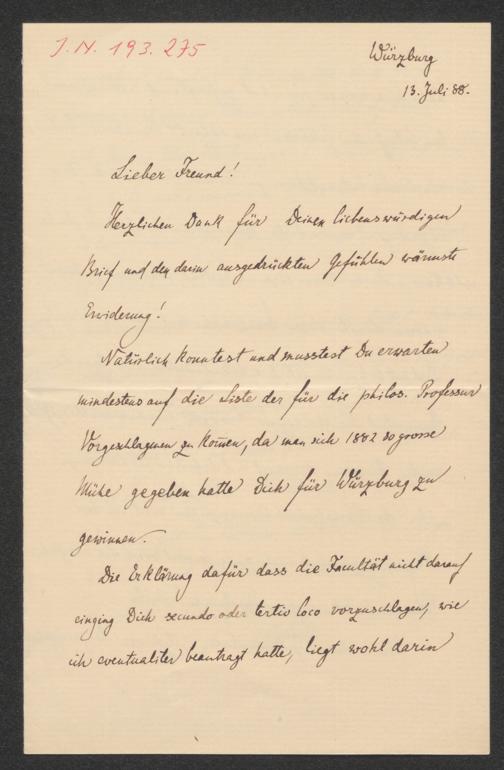 J. N. 193.275
Würzburg
13. Juli 88.
Lieber Freund!
Herzlichen Dank für Deinen liebenswürdigen
Brief und den darin ausgedrückten Gefühlen wärmste
Erwiderung!
Natürlich konntest und musstest Du erwarten
mindestens auf die Liste der für die philos. Professur
Vorgeschlagenen zu kom̅en, da man sich 1882 so grosse
Mühe gegeben hatte Dich für Würzburg zu
gewinnen.
Die Erklärung dafür dass die Facultät nicht darauf
einging Dich secundo oder tertio loco vorzuschlagen, wie
ich eventualiter beantragt hatte, liegt wohl darin